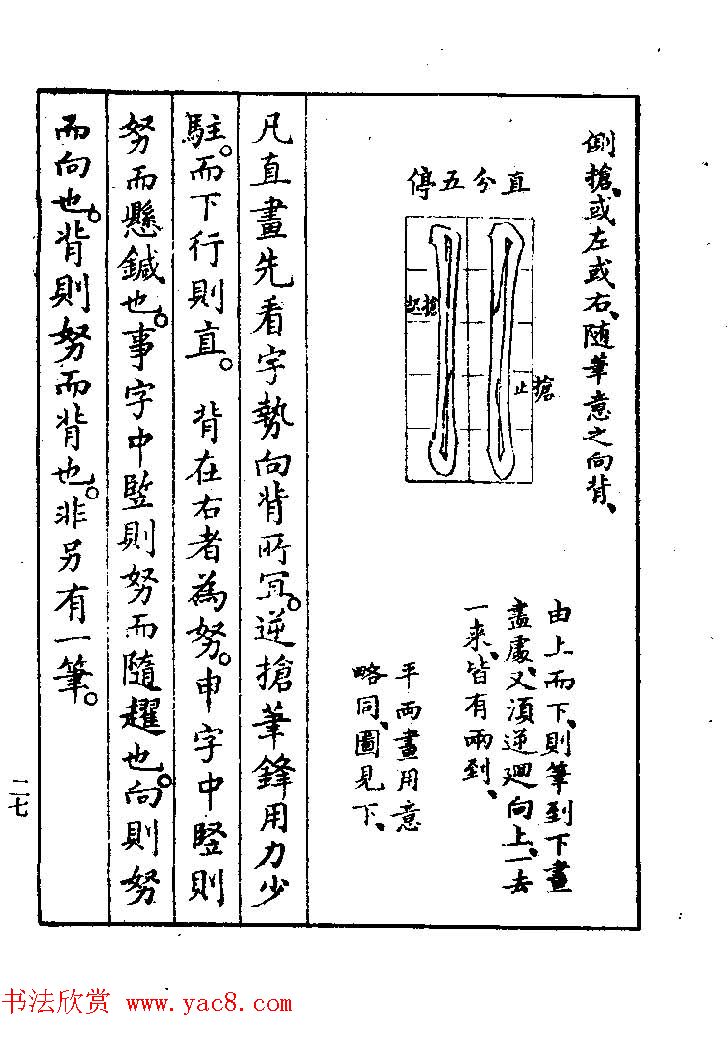 倒搶、或左或右、随筆意之向背、
直分五停
搶止
搶起
由上而下、則筆到下畫
盡處、又須逆廻向上、一去
一来、皆有兩到、
平兩畫用意
略同、圖見下、
凡直畫先看字勢向背所冝。逆搶筆鋒用力少
駐。而下行則直。背在右者為努。申字中竪則
努而懸鍼也。事字中竪則努而隨趯也。向則努
而向也。背則努而背也。非另有一筆。
二七
书法欣赏 www.yac8.com